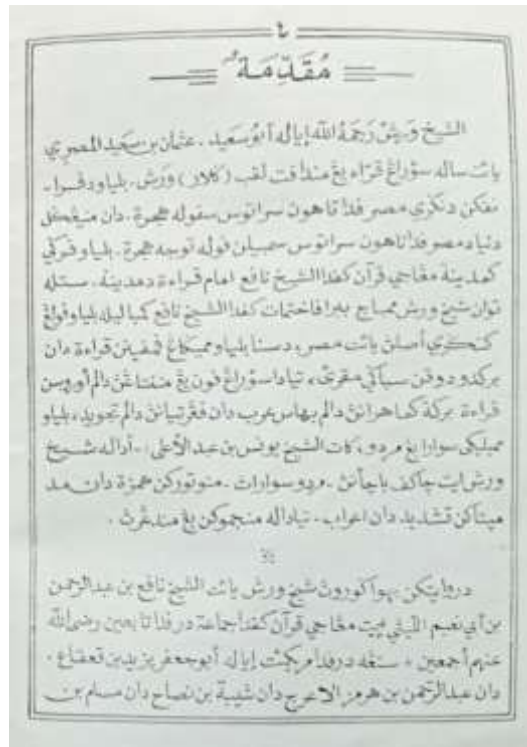 ٤
مُقَدِّمَة
الشيخ وَرَشْ رَحِمَهُ اللّٰه إياله أبوُ سعيد . عثمان بن سعيد المصري
يائت ساله سؤراڠ قرّاء يڠ مندافت لقب (كلار) وَرَش . بلياو دفرا .
نقكن دنكري مصر فدا تاهون سراتوس سفوله هجرة . دان منيڠڬل
دنيا دمصر فدا تاهون سراتوس سمبيلن فوله توجه هجرة . بلياو فرڬي
كمدينة مڠاجي قرآن كفدا الشيخ نافع امام قراءة دمدينة . ستله
توان شيخ ورش ممباچ ببرافا ختمات كفدا الشيخ نافع كمباليله بلياو فولڠ
كنكري أصلڽ يائت مصر، دسنا بلياو ممڬڠ قراءة دان
بركدودوقن سباڬي مقرئ، تيادا سؤراڠ فون يڠ دالم أوروسن
قراءة بركة كماهرانڽ دالم بهاس عرب دان دالم تجويد، بلياو
ممبليكي سوارا يڠ مردو، كات الشيخ يونس بن عبد الأعلى : اداله شيخ
ورش ايت باچأنڽ . مردو سوارات . همزة دان مد
ميتاكن تشديد دان اعراب . تياداله منجموكن يڠ مندڠرڽ .
درواتيكن بهوا ڬورون شيخ ورش يائت الشيخ نافع بن عبد الرحمن
بن أبي نعيم الليثي مڠاجي قرآن كفدا جماعة درفدا تابعين رضى اللّٰه
عنهم أجمعين ، ستڠه درفدا مركئت إياله أبو جعفر يزيد بن قعقاع .
دان عبد الرّحمن بن هرمز الاعرج دان شيبة بن نصاح دان مسلم بن